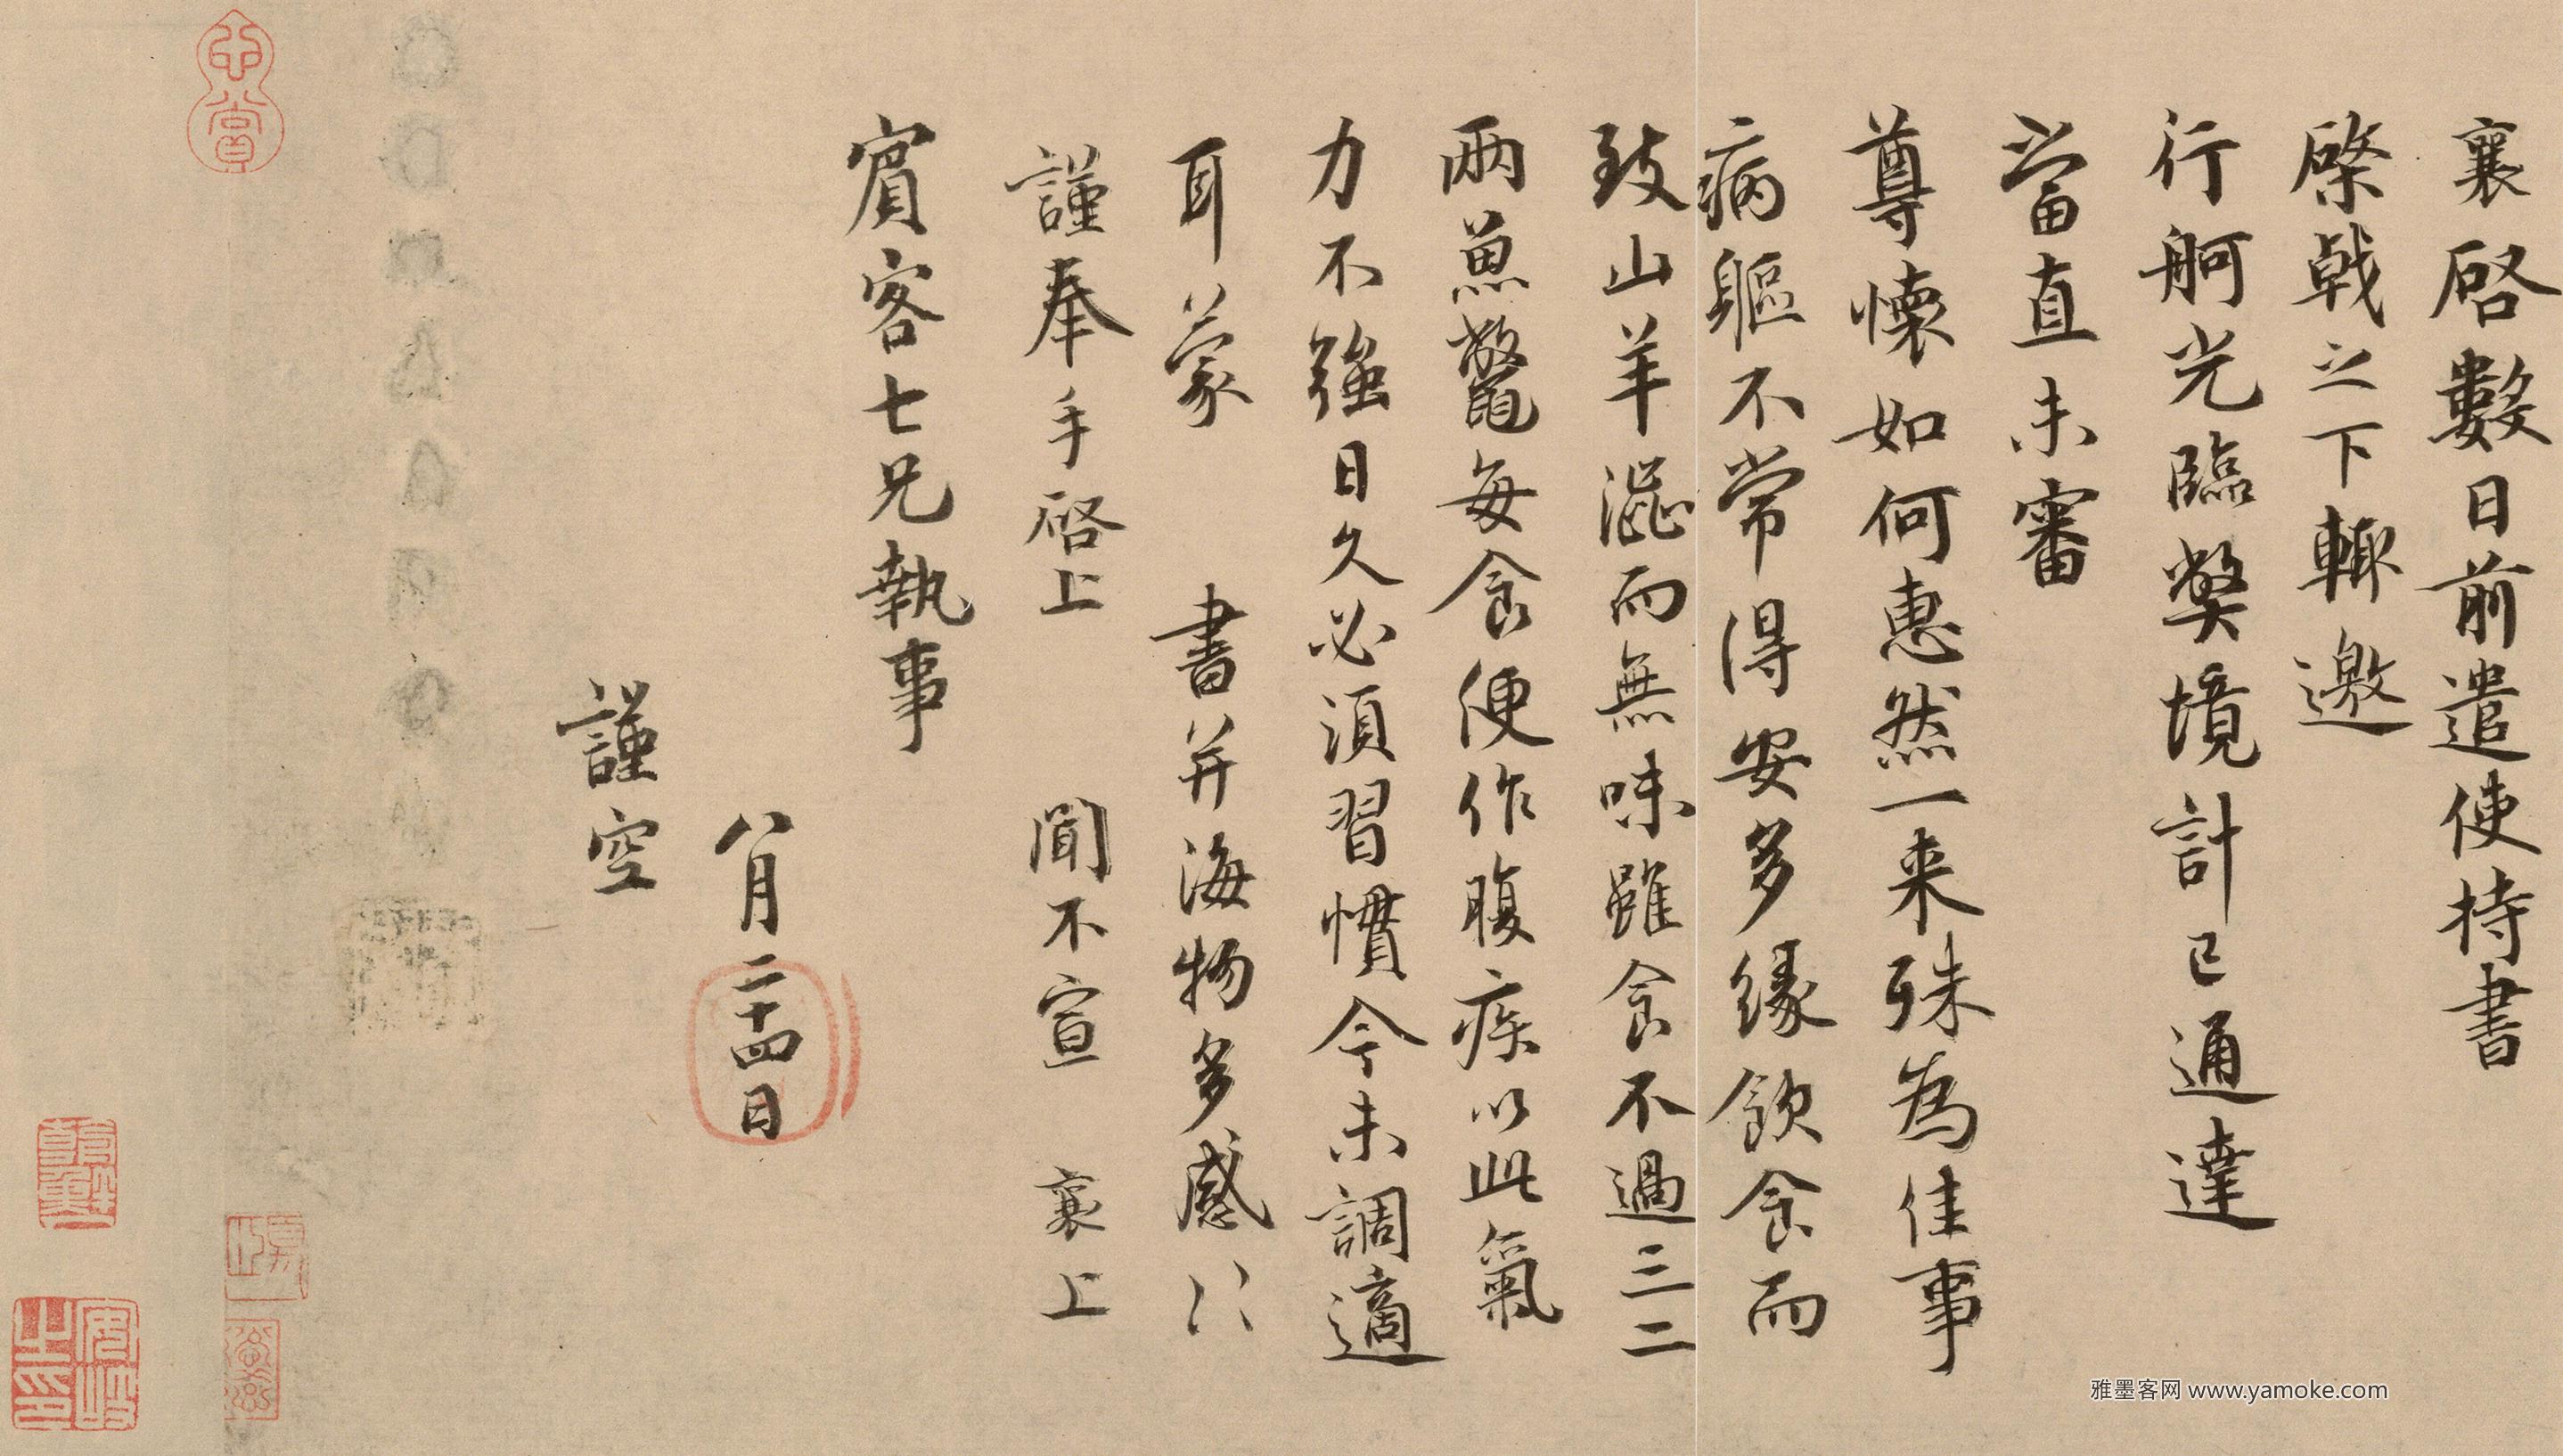 襄啓數日前遣使持書
棨戟之下輙邀
行舸光臨獘境計已通達
當直未審
尊懷如何惠然一来殊為佳事
病軀不常得安多緣飲食而
致山羊澀而無味雖食不過三二
兩魚鼈每食便作腹疾以此氣
力不強日久必須習慣今未調適
耳蒙 書并海物多感〻
謹奉手啓上 聞不宣 襄上
賓客七兄執事
八月二十四日
謹空
雅墨客网 www.yamoke.com